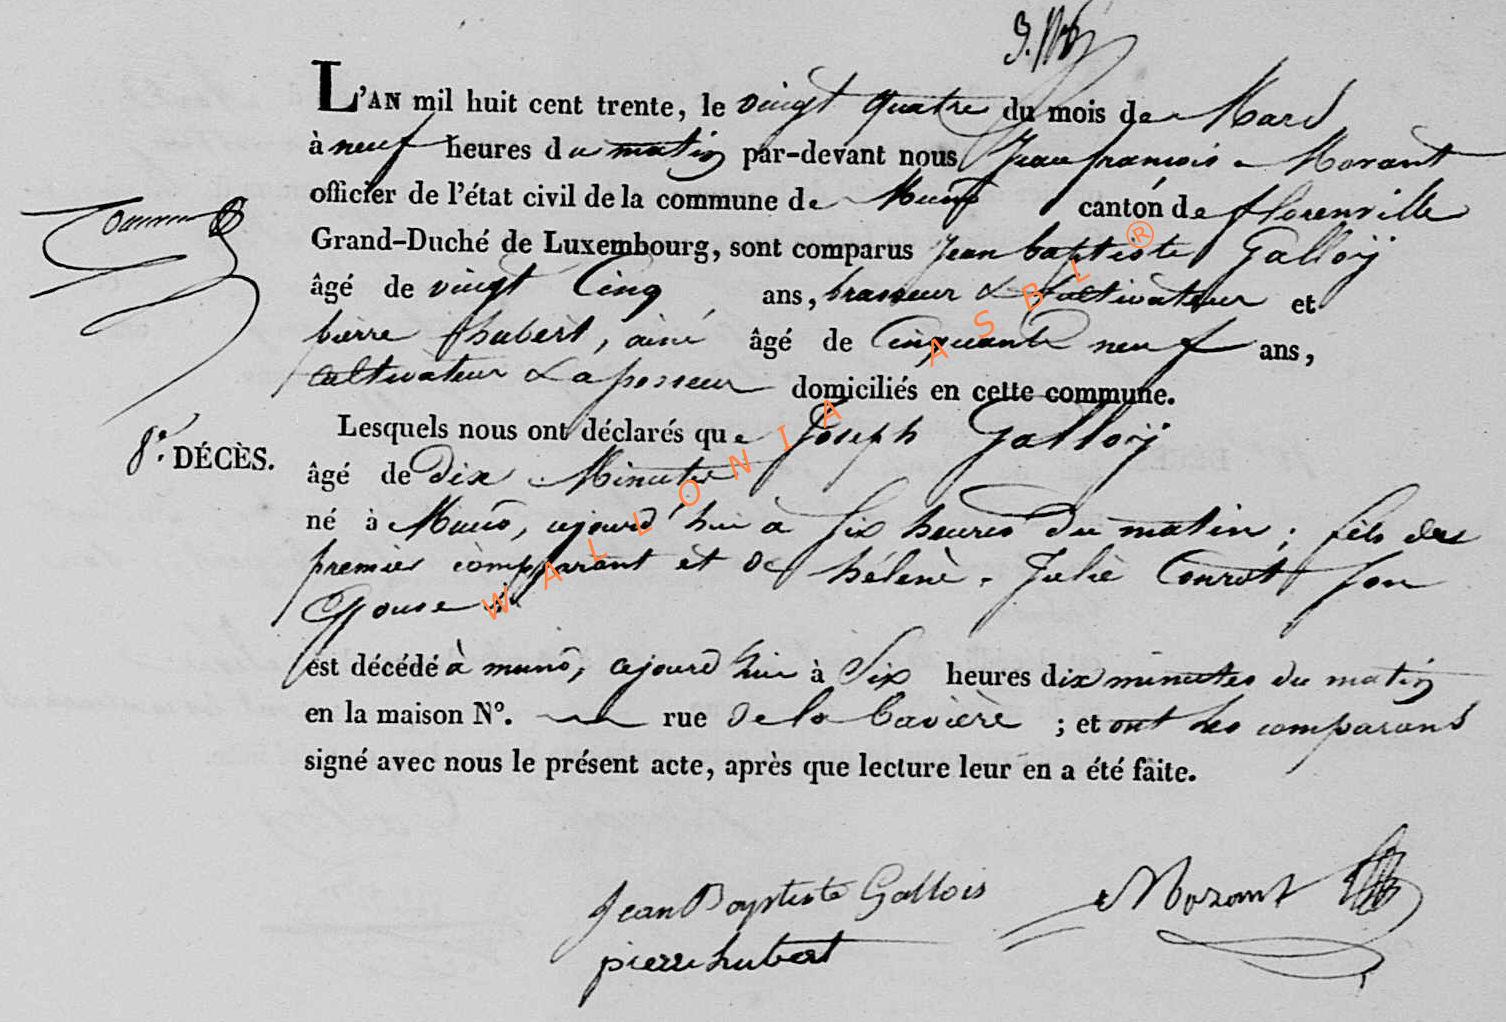 L'AN mil huit cent trente, le vingt quatre du mois de Mars
à neuf heures du matin par-devant nous Jean françois Morant
officier de l'état civil de la commune de Muno canton de florenville
Grand-Duché de Luxembourg, sont comparus Jean baptiste Galloÿ
âgé de vingt Cinq ans, brasseur & Cultivateur et
pierre hubert, ainé âgé de Cinquante neuf ans,
Cultivateur & domiciliés en cette commune.
Lesquels nous ont déclarés que Joseph Galloÿ
8e. DÉCÈS.
âgé de dix Minutes
né à Muno, cejourd'hui à Six heures du matin ; fils du
premier comparant et de hélene Julie Conrot son
Epouse
est décédé à muno, cejourd'hui à Six heures dix minutes du matin
en la maison No. rue de la bavière ; et ont les comparans
signé avec nous le présent acte, après que lecture leur en a été faite.
Jean Baptiste Gallois Morant
pierre hubert
WALLONIA ASBL ®